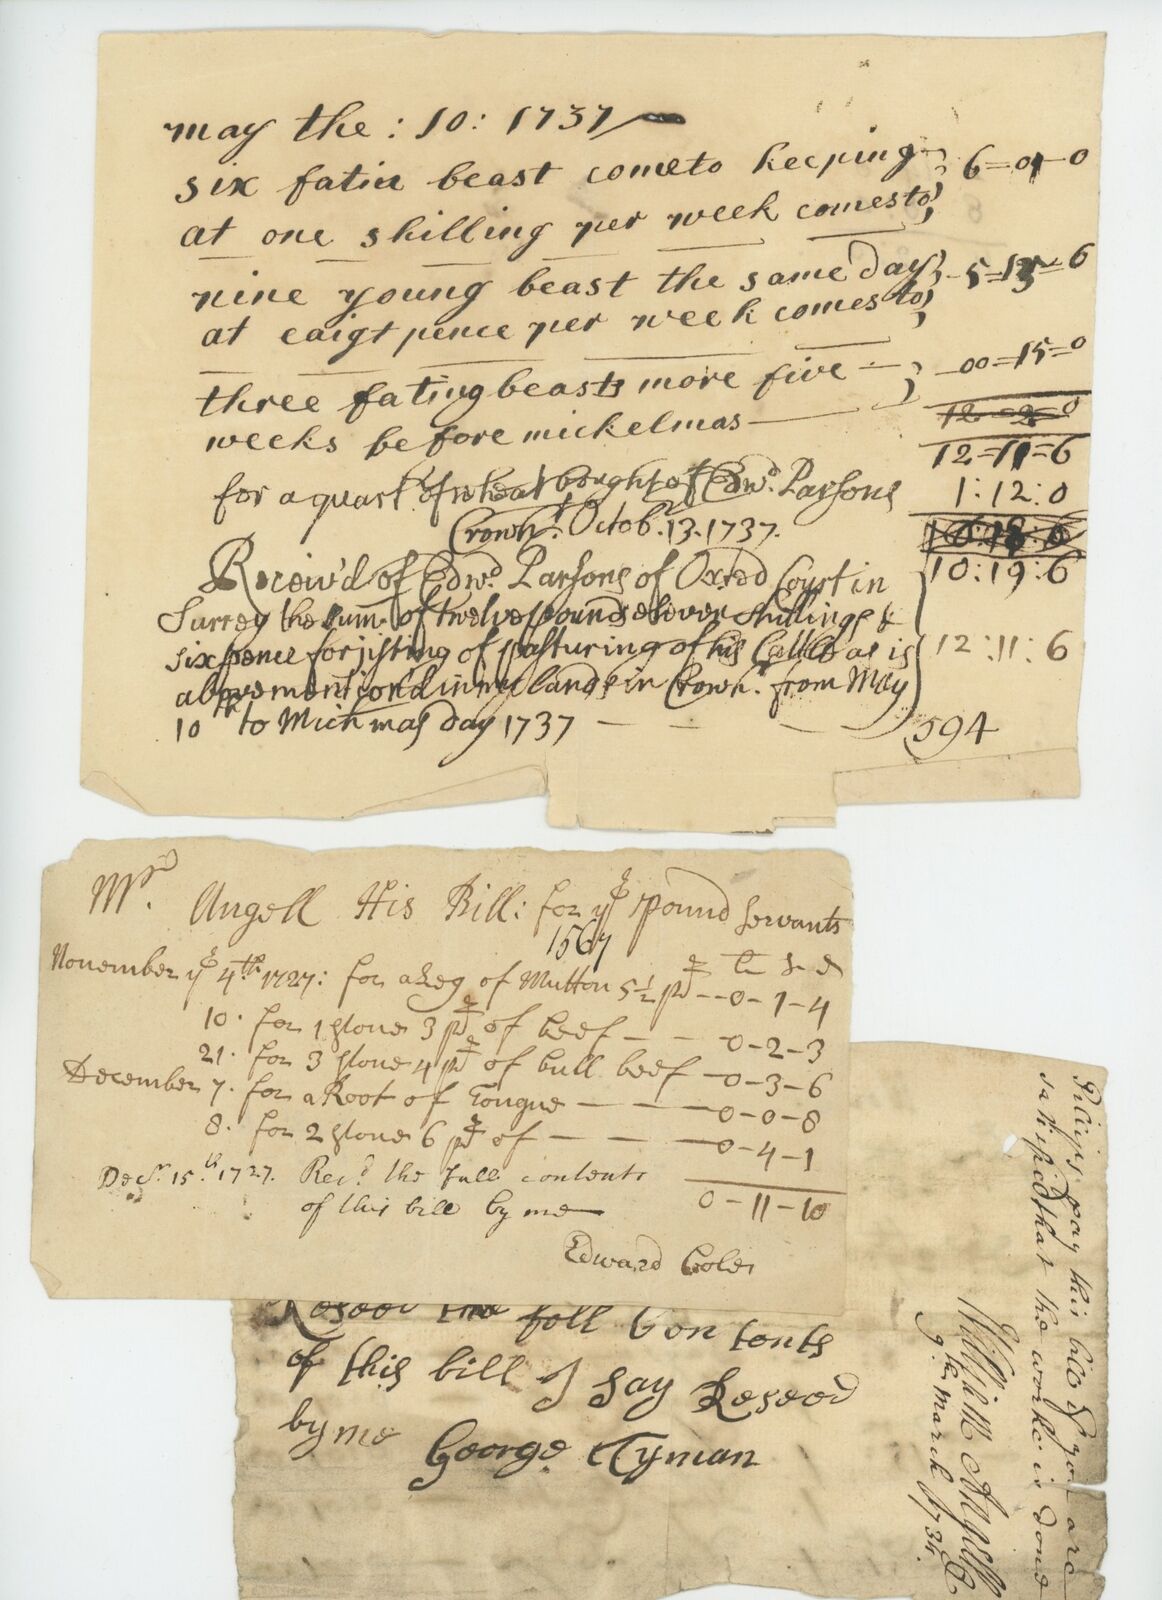 may the : 10 : 1737
six fatin beast cometo keeping
at one skilling per week comesto 6=01=0
nine young beast the same day
at eaigt pence per week comesto 5=15=6
three fating beasts more five
weeks before mickelmas 00=15=0
12=2=0
12=11=6
for a quart.r of wheat bought of Edw.d Parsons 1:12:0
Crowh.t Octob.r 13. 1737.
10:19:6
Receiv'd of Edw.d Parsons of Oxted Court in
Surrey the sum of twelve pounds eleven shillings &
sixpence for jisting of pasturing of his Cattle as is 12:11:6
above mention'd in my lands in Crowh.t from May
10th to Michmas day 1737 594
Mr. Angell His Bill: for ye pound servants
1567
November ye 4th 1727: for a Leg of Mutton 5 1/2 pd - - 0 - 1 - 4
10. for 1 stone 3 pd of beef - - 0 - 2 - 3
21. for 3 stone 4 pd of bull beef - 0 - 3 - 6
December 7. for a Root of Tongue - - - 0 - 0 - 8
8. for 2 stone 6 pd of - - - 0 - 4 - 1
Decr. 15th. 1727. Recd the full contents
of this bill by me 0 - 11 - 10
Edward Coles
Reseod the foll Contents
of this bill I say Reseod
by me
George Tyman
Pilips pay this bill if you are
satisfied that the worke is done
William Angell
9th. March 1734.